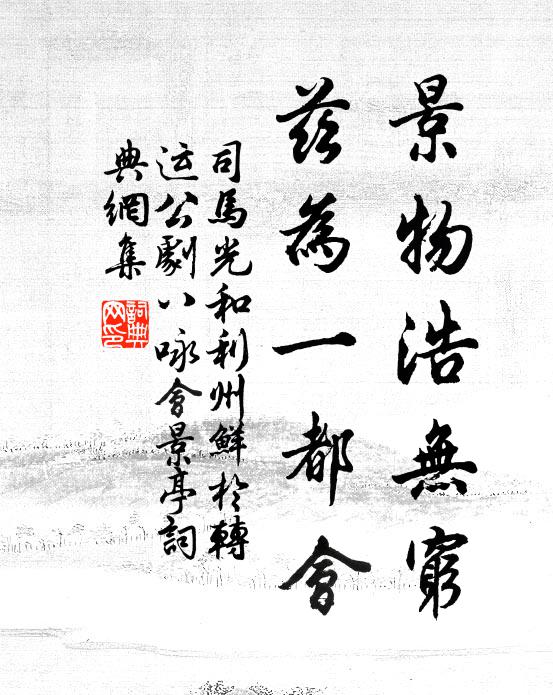 景物浩無窮
茲為一都會
司馬光和利州鮮於轉
运公劇八咏會景亭詞
典網集
詞典
网印